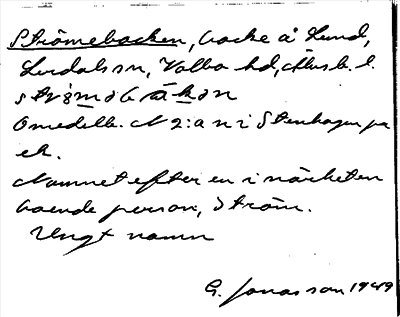 Strömebacken, backe å Lund,
Lerdals sn, Valbo hd, Älvsb. l.
strö̀məbàkən
Omedelb. N 2:a n i Stenhagen på
ek.
Namnet efter en i närheten
boende person, Ström.
Ungt namn
G. Jonasson 1949